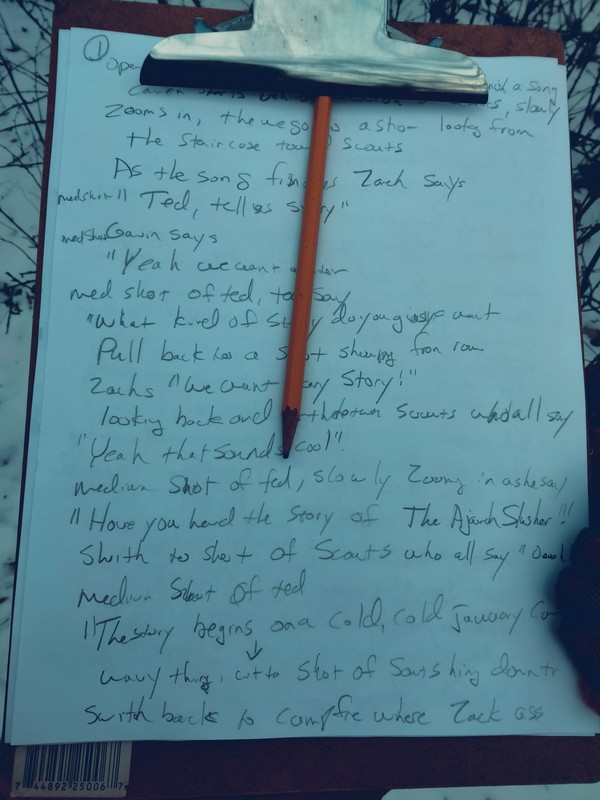 ①
Open
not a song
slowly
Zooms in, then we go to a shot looking from
the staircase toward Scouts
As the song finishes Zach says
med shot " Ted, tell us story"
med shot Gavin says
"Yeah we want
med shot of ted, to say
"What kind of story do you guys want
Pull back to a shot showing from row
Zachs "We want any Story!"
looking back and Scouts who all say
"Yeah that sounds cool".
medium shot of ted, slowly Zoomy in as he say
"Have you heard the Story of The Ajawah Slasher"!!
Swith to shot of Scouts who all say "
medium Shot of ted
"The story begins on a cold, cold january
wavy thing, cut to shot of Scouts
Swith back to campfire where Zack
7 44892 25006 7